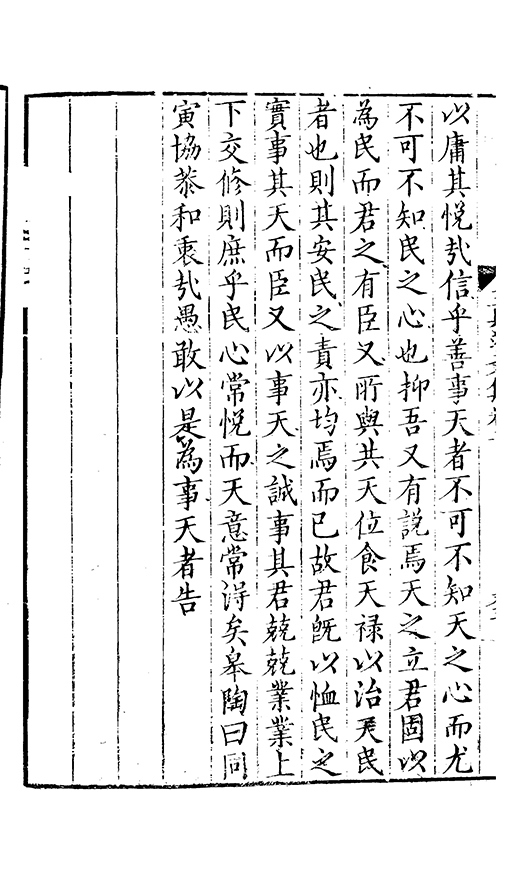 以庸其悦㢤信乎善事天者不可不知天之心而尤
不可不知民之心也抑吾又有説焉天之立君固以
為民而君之有臣又所與共天位食天禄以治天民
者也則其安民之責亦均焉而已故君旣以恤民之
實事其天而臣又以事天之誠事其君兢兢業業上
下交修則庶乎民心常悦而天意常得矣皋陶曰同
寅協恭和衷㢤愚敢以是為事天者告